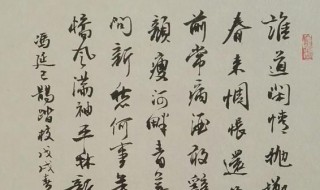 誰道閑情抛
春来惆悵還
前常病酒敢辞
顏瘦河畔青芜
問新愁何事年
橋風滿袖平林新
冯延巳鵲踏枝戊戌春